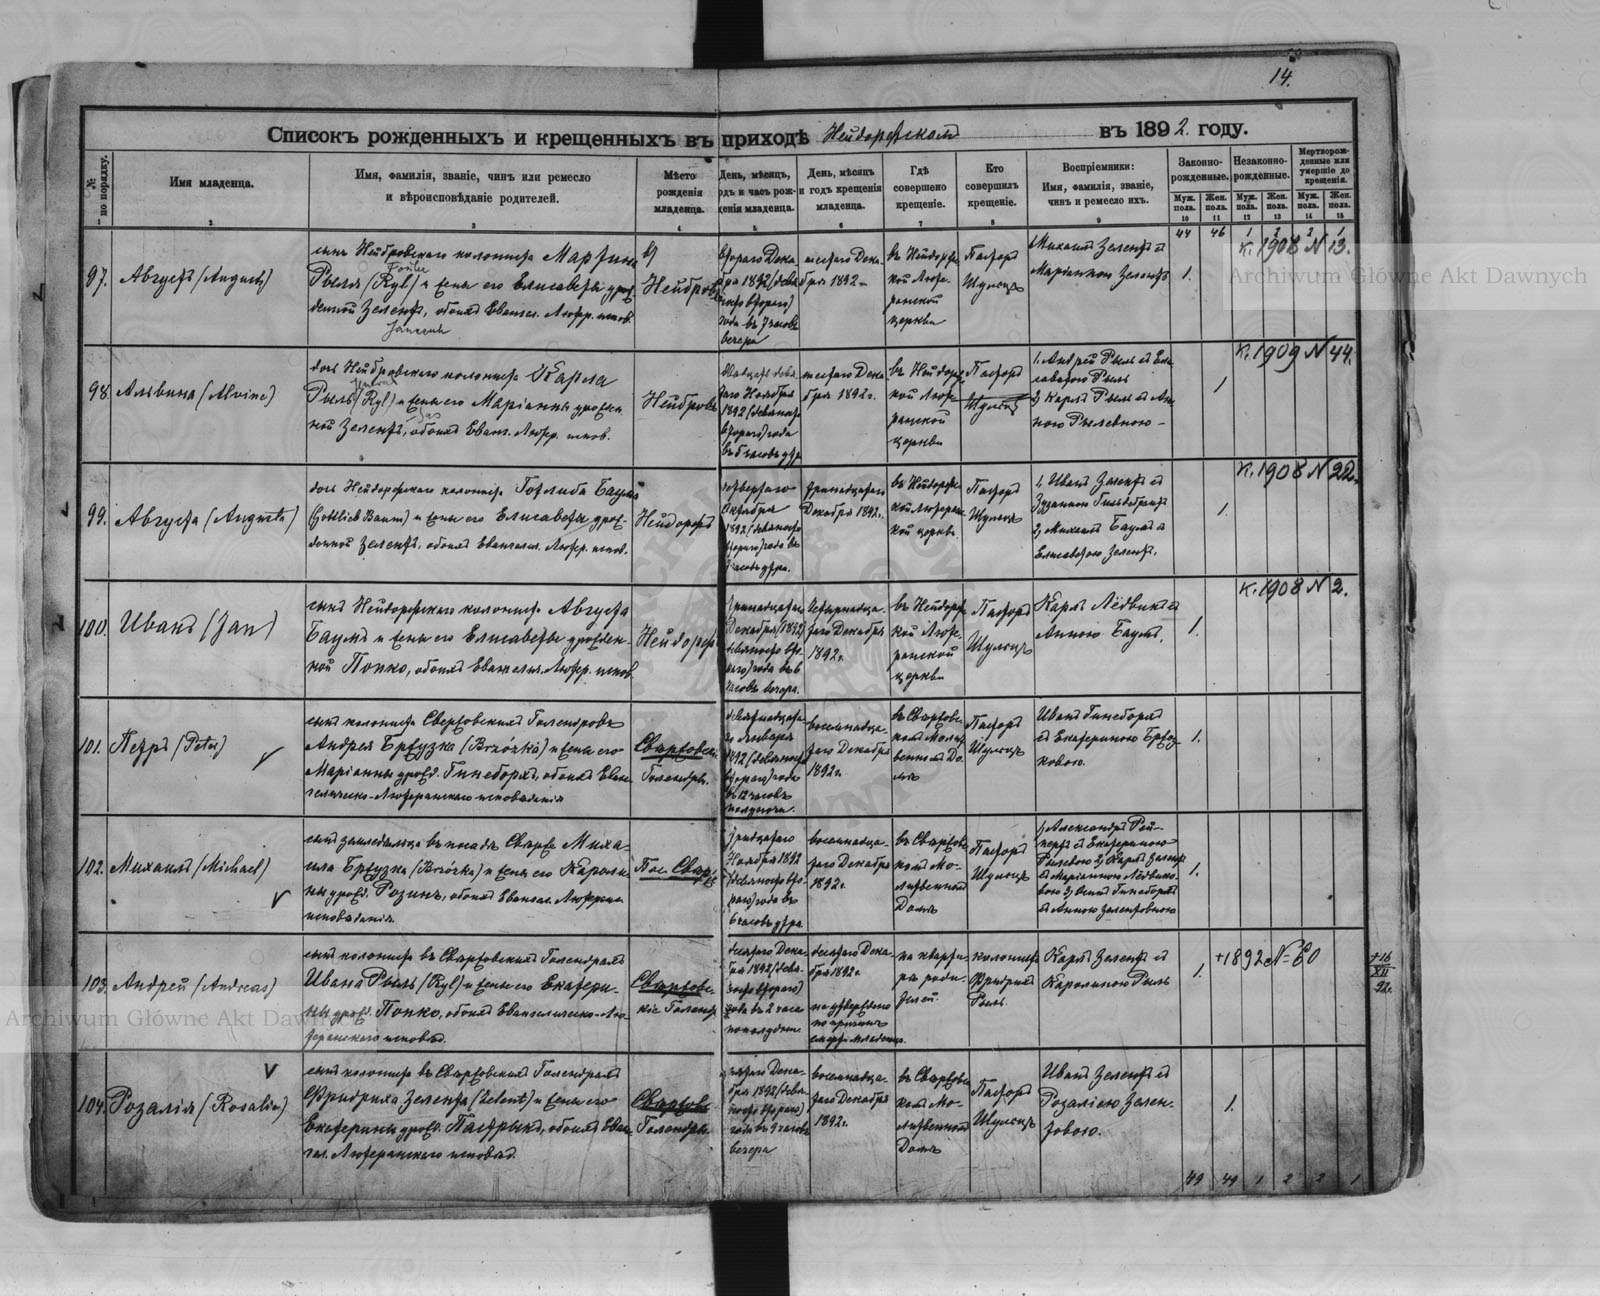 14.
Списокъ рожденныхъ и крещенныхъ въ приходѣ Нейдорфскомъ въ 1892. году.
№ по порядку.
Имя младенца.
Имя, фамилія, званіе, чинъ или ремесло
и вѣроисповѣданіе родителей.
Мѣсто
рожденія
младенца.
День, мѣсяцъ,
годъ и часъ рож-
денія младенца.
День, мѣсяцъ
и годъ крещенія
младенца.
Гдѣ
совершено
крещеніе.
Кто
совершилъ
крещеніе.
Воспріемники:
Имя, фамилія, званіе,
чинъ и ремесло ихъ.
Законно-
рожденные.
Незаконно-
рожденные.
Мертворож-
денные или
умершіе до
крещенія.
Муж.
пола.
Жен.
пола.
Муж.
пола.
Жен.
пола.
Муж.
пола.
Жен.
пола.
2 3 4 5 6 7 8 9 10 11 12 13 14 15
44 46 1 2 2 1
97.
Августъ (August)
сынъ Нейбровскаго колониста Мартина
Рыля (Ryl) и жены его Елисаветы урож-
денной Зелентъ, обоихъ Еванг. Лютер. испов.
Нейбровъ
втораго Дека-
бря 1892 (девя-
носто втораго)
года въ 7 часовъ
вечера
шестаго Дека-
бря 1892 г.
въ Нейдорфс-
кой Люте-
ранской
церкви
Пасторъ
Шульцъ
Михаилъ Зелентъ и
Маріанною Зелентъ
1.
К. 1908 N 13.
98.
Альвина (Alvine)
дочь Нейбровскаго колониста Карла
Рыль (Ryl) и жены его Маріанны урожден-
ной Зелентъ, обоихъ Еванг. Лютер. испов.
Нейбровъ
Ноября
1892 (девяносто
втораго) года
въ 5 часовъ утр.
шестаго Дека-
бря 1892 г.
въ Нейдорфс-
кой Люте-
ранской
церкви
Пасторъ
Шульцъ
1. Андрей Рыль и Ели-
саветою Рыль
2) Карлъ Рыль и Ан-
ною Рылевною
1
К. 1909 N 44.
99.
Августа (Augusta)
дочь Нейдорфскаго колониста Готлиба Баумъ
(Gottlieb Baum) и жены его Елисаветы урож-
денной Зелентъ, обоихъ Евангел. Лютер. испов.
Нейдорфъ
Октября
1892 (девяносто
втораго) года въ
часовъ утра.
тринадцатаго
Декабря 1892 г.
въ Нейдорфс-
кой Лютеранс-
кой церкви
Пасторъ
Шульцъ
1, Иванъ Зелентъ и
Зузанною Гильдебрантъ
2, Михаилъ Баумъ и
Елисаветою Зелентъ.
1.
К. 1908 N 22.
100.
Иванъ (Jan)
сынъ Нейдорфскаго колониста Августа
Баумъ и жены его Елисаветы урожден-
ной Попко, обоихъ Евангел. Лютер. испов.
Нейдорфъ
тринадцатаго
Декабря (1892)
девяносто вто-
раго) года въ 6
часовъ вечера.
четырнадца-
таго Декабря
1892 г.
въ Нейдорфс-
кой Люте-
ранской
церкви
Пасторъ
Шульцъ
Карлъ Лёдвихъ и
Анною Баумъ.
1.
К. 1908 N 2.
101.
Петръ (Peter)
сынъ колониста Свержовскихъ Голендровъ
Андрея Бржузка (Brzózka) и жены его
Маріанны урожд. Гинеборгъ, обоихъ Еван-
гелическо-Лютеранскаго исповѣданія
Свержовскіе
Голендры.
девятнадцата-
го Января
1892 (девяносто
втораго) года
въ 12 часовъ
полуночи.
восемнадца-
таго Декабря
1892 г.
въ Свержовс-
комъ Молит-
венномъ До-
мѣ
Пасторъ
Шульцъ
Иванъ Гинеборгъ
и Екатериною Бржоз-
ковою.
1.
102.
Михаилъ (Michael)
сынъ земледѣльца въ посадѣ Свержѣ Миха-
ила Бржузка (Brzózka) и жены его Кароли-
ны урожд. Розинъ, обоихъ Евангел. Лютеран.
исповѣданія.
Пос. Свержъ
тридцатаго
Ноября 1892
(девяносто вто-
раго) года въ
6 часовъ утра
восемнадца-
таго Декабря
1892.
въ Свержовс-
комъ Мо-
литвенномъ
Домѣ
Пасторъ
Шульцъ
1) Александръ Рей-
и Екатериною
Рылевою 2) Карлъ Зелентъ
и Маріанною Лёдвихо-
вою 3) Гинеборгъ
и Анною Зелентовною
1.
103.
Андрей (Andreas)
сынъ колониста въ Свержовскихъ Голендрахъ
Ивана Рыль (Ryl) и жены его Екатери-
ны урожд. Попко, обоихъ Евангелическо-Лю-
теранскаго исповѣд.
Свержовс-
кіе Голендр.
десятаго Дека-
бря 1892 (девя-
носто втораго)
года въ 2 часа
пополудни
десятаго Дека-
бря 1892 г.
не утверждено
по причинѣ
смерти младенца.
на кварти-
рѣ роди-
телей.
колонистъ
Фридрихъ
Рыль.
Карлъ Зелентъ и
Каролиною Рыль
1.
+1892 N- 60
+16
XII
92 г.
104.
Розалія (Rosalie)
колониста въ Свержовскихъ Голендрахъ
Фридриха Зелента (Zelent) и жены его
Екатерины урожд. Пастрыкъ, обоихъ Еван-
гел. Лютеранскаго исповѣд.
Свержовс.
Голендры.
Дека-
бря 1892 (девя-
носто втораго)
года въ 9 часовъ
вечера
восемнадца-
таго Декабря
1892 г.
въ Свержовс-
комъ Мо-
литвенномъ
Домѣ
Пасторъ
Шульцъ
Иванъ Зелентъ и
Розаліею Зелен-
товою.
1.
49 49 1 2 2 1
Archiwum Główne Akt Dawnych
Archiwum Główne Akt Dawnych